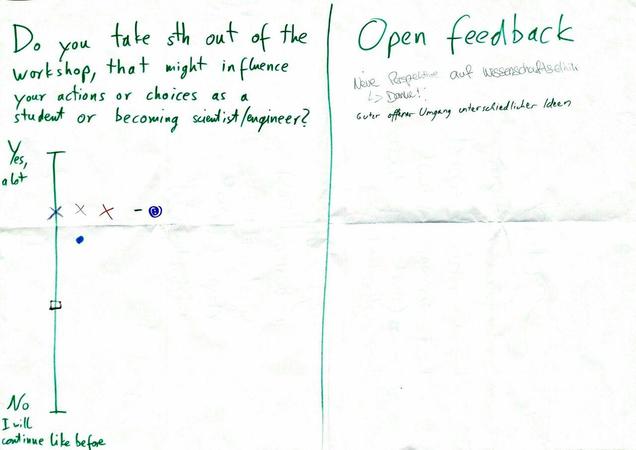 Do you take sth out of the
workshop, that might influence
your actions or choices as a
student or becoming scientist/engineer?
Yes,
a lot
No
I will
continue like before
Open feedback
Neue Perspektive auf Wissenschaftsethik
↳ Danke!
Guter offener Umgang unterschiedlicher Ideen